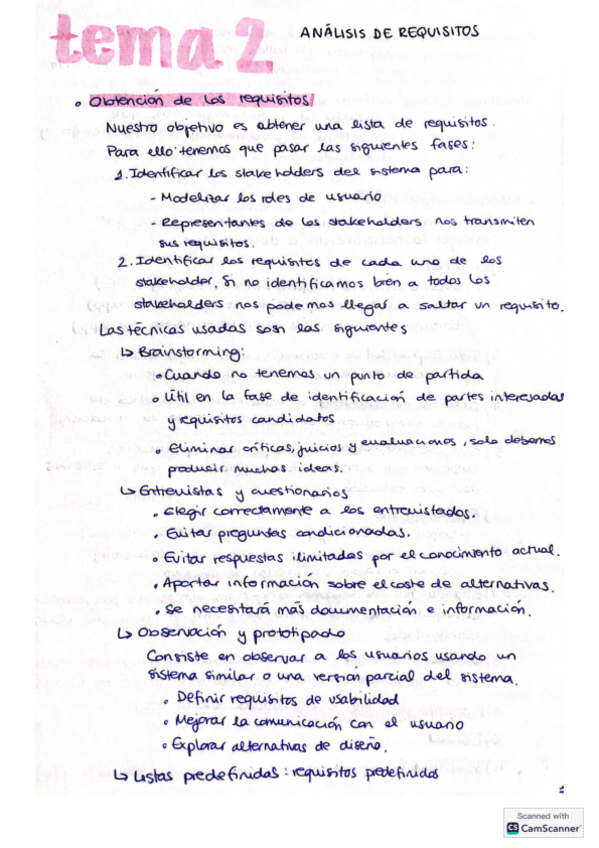 tema 2
ANÁLISIS DE REQUISITOS
• Obtención de los requisitos
Nuestro objetivo es obtener una lista de requisitos.
Para ello tenemos que pasar las siguientes fases:
1. Identificar los stakeholders del sistema para:
- Modelizar los roles de usuario
- Representantes de los stakeholders nos transmiten
sus requisitos.
2. Identificar los requisitos de cada uno de los
stakeholder, si no identificamos bien a todos los
stakeholders nos podemos llegar a saltar un requisito.
Las técnicas usadas son las siguientes
↳ Brainstorming:
• Cuando no tenemos un punto de partida
• Útil en la fase de identificación de partes interesadas
y requisitos candidatos
• Eliminar críticas, juicios y evaluaciones, solo debemos
producir muchas ideas.
↳ Entrevistas y cuestionarios
• Elegir correctamente a los entrevistados.
• Evitar preguntas condicionadas.
• Evitar respuestas ilimitadas por el conocimiento actual.
• Aportar información sobre el coste de alternativas.
• Se necesitará más documentación e información.
↳ Observación y prototipado
Consiste en observar a los usuarios usando un
sistema similar o una versión parcial del sistema.
• Definir requisitos de usabilidad
• Mejorar la comunicación con el usuario
• Explorar alternativas de diseño.
↳ Listas predefinidas: requisitos predefinidos
Scanned with
CS CamScanner